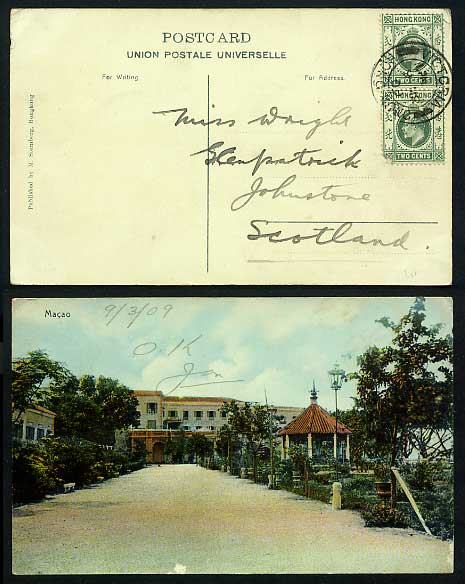 POSTCARD
UNION POSTALE UNIVERSELLE
For Writing.
For Address.
HONG KONG
TWO CENTS
HONG KONG
TWO CENTS
VICTORIA
Published by M. Sternberg, Hongkong
Miss Wright
Glenpatrick
Johnstone
Scotland.
Maçao
9/3/09
O.K